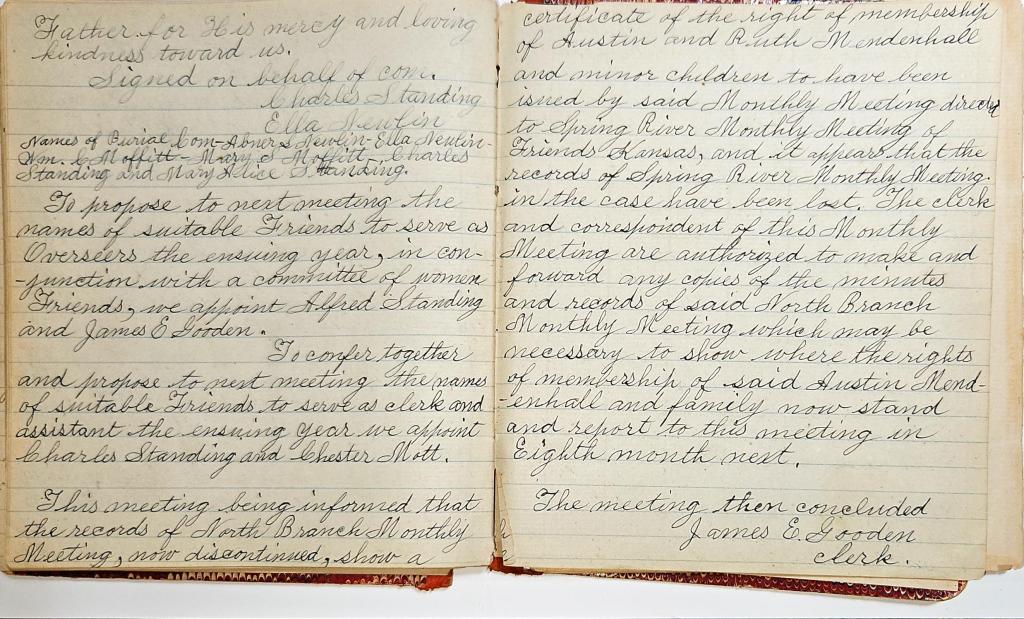 Father for His mercy and loving
kindness toward us.
Signed on behalf of com.
Charles Standing
Ella Newlin
Names of Burial Com- Abner S Newlin- Ella Newlin-
Wm. C Moffitt - Mary S Moffitt - Charles
Standing and Mary Alice Standing.
To propose to next meeting the
names of suitable Friends to serve as
Overseers the ensuing year, in con-
-junction with a committee of women
Friends, we appoint Alfred Standing
and James E Gooden.
To confer together
and propose to next meeting the names
of suitable Friends to serve as clerk and
assistant the ensuing year we appoint
Charles Standing and Chester Mott.
This meeting being informed that
the records of North Branch Monthly
Meeting, now discontinued, show a
certificate of the right of membership
of Austin and Ruth Mendenhall
and minor children to have been
issued by said Monthly Meeting directed
to Spring River Monthly Meeting of
Friends Kansas, and it appears that the
records of Spring River Monthly Meeting
in the case have been lost. The clerk
and correspondent of this Monthly
Meeting are authorized to make and
forward any copies of the minutes
and records of said North Branch
Monthly Meeting which may be
necessary to show where the rights
of membership of said Austin Mend-
-enhall and family now stand
and report to this meeting in
Eighth month next.
The meeting then concluded
James E. Gooden
clerk.